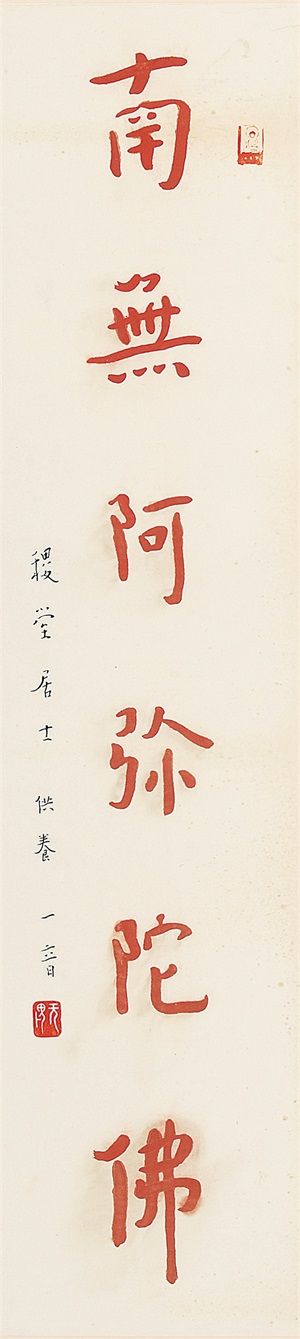 南無阿弥陀佛
稷堂居士供養 一音